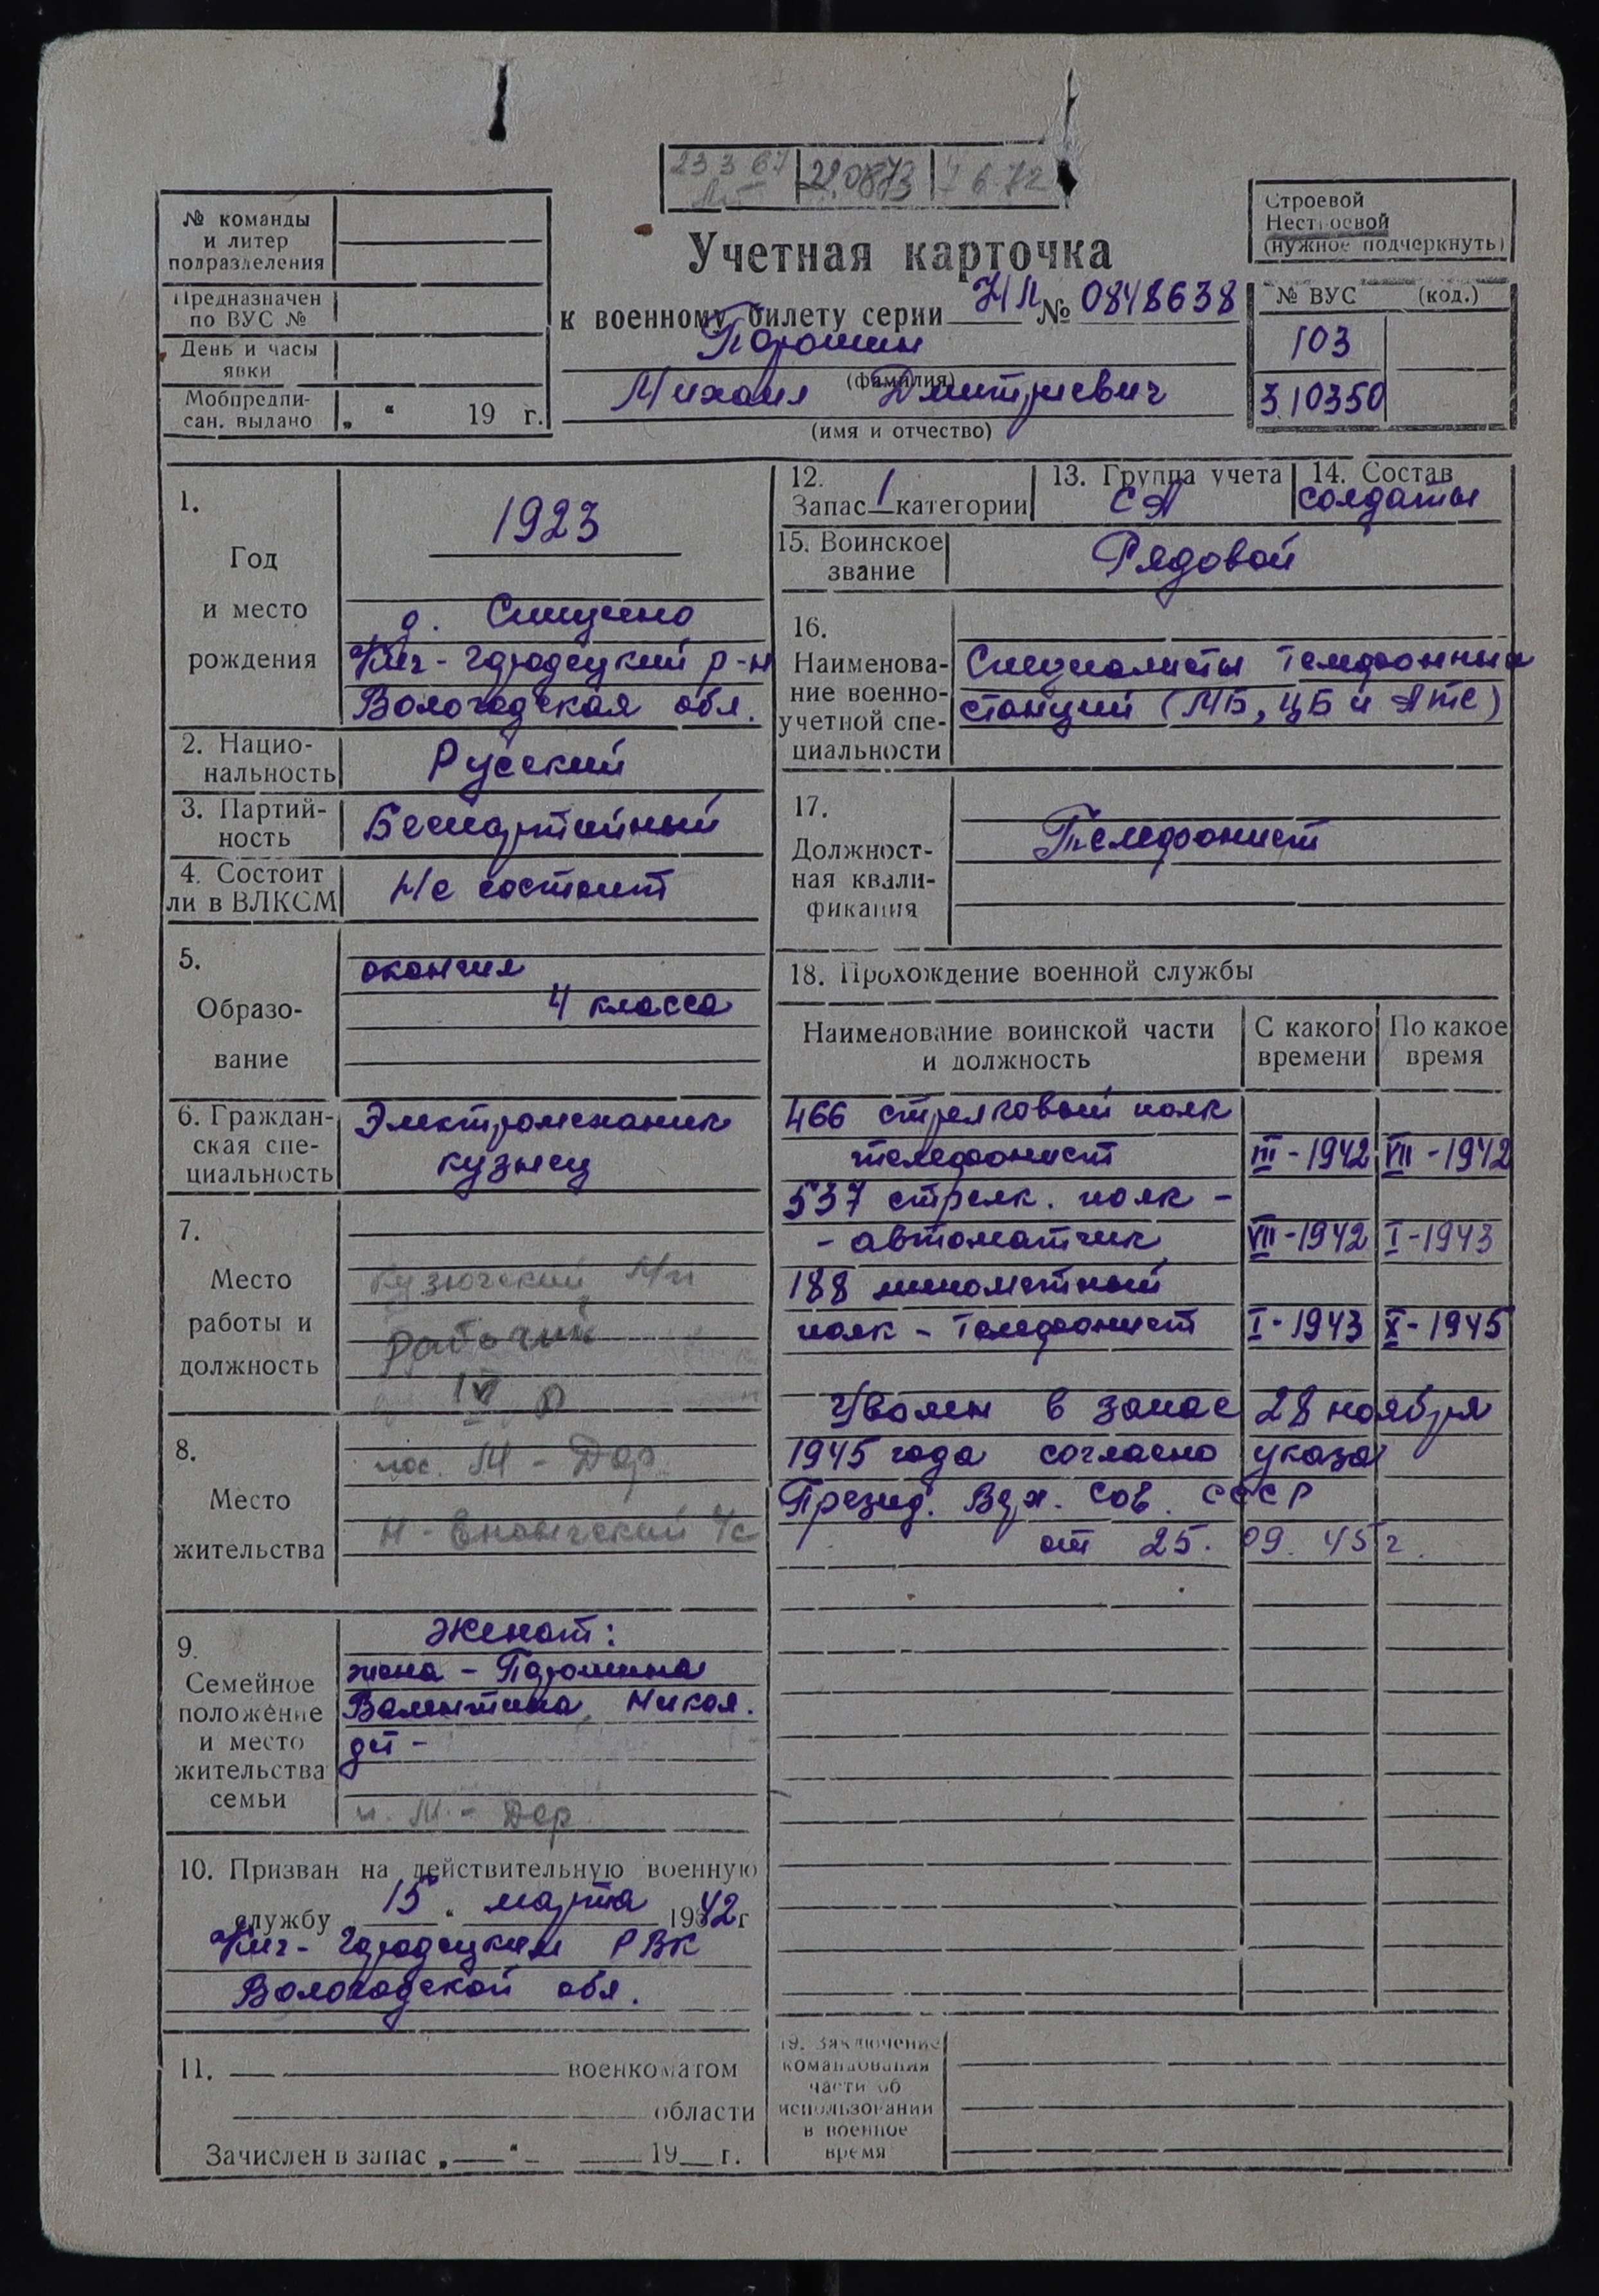 23 3 67
22.08.73
7 6 72
№ команды
и литер
подразделения
Предназначен
по ВУС №
День и часы
явки
Мобпредпи-
сан. выдано „ “ 19 г.
Учетная карточка
к военному билету серии НЛ № 0848638
Порошин
(фамилия)
Михаил Дмитриевич
(имя и отчество)
Строевой
Нестроевой
(нужное подчеркнуть)
№ ВУС (код.)
103
310350
1.
Год
и место
рождения
1923
д.
Кич-Городецкий р-н
Вологодская обл.
2. Нацио-
нальность
Русский
3. Партий-
ность
Беспартийный
4. Состоит
ли в ВЛКСМ
Не состоит
5.
Образо-
вание
окончил
4 класса
6. Граждан-
ская спе-
циальность
Электромеханик
кузнец
7.
Место
работы и
должность
М/п
рабочий
IV р
8.
Место
жительства
пос. М-Дор
Н-Енангский с/с
9.
Семейное
положение
и место
жительства
семьи
Женат:
жена - Порошина
Валентина Никол.
дет -
п. М.-Дор
10. Призван на действительную военную
службу „15“ марта 1942 г
Кич-Городецким РВК
Вологодской обл.
11. военкоматом
области
Зачислен в запас „ “ 19 г.
12.
Запас 1 категории
13. Группа учета
СА
14. Состав
солдаты
15. Воинское
звание
Рядовой
16.
Наименова-
ние военно-
учетной спе-
циальности
Специалисты телефонных
станций (МБ, ЦБ и АТС)
17.
Должност-
ная квали-
фикация
Телефонист
18. Прохождение военной службы
Наименование воинской части
и должность
С какого
времени
По какое
время
466 стрелковый полк
телефонист III-1942 VII-1942
537 стрелк. полк -
- автоматчик VII-1942 I-1943
188 минометный
полк - телефонист I-1943 X-1945
Уволен в запас 28 ноября
1945 года согласно указа
Презид. Верх. Сов. СССР
от 25. 09. 45 г.
19. Заключение
командования
части об
использовании
в военное
время